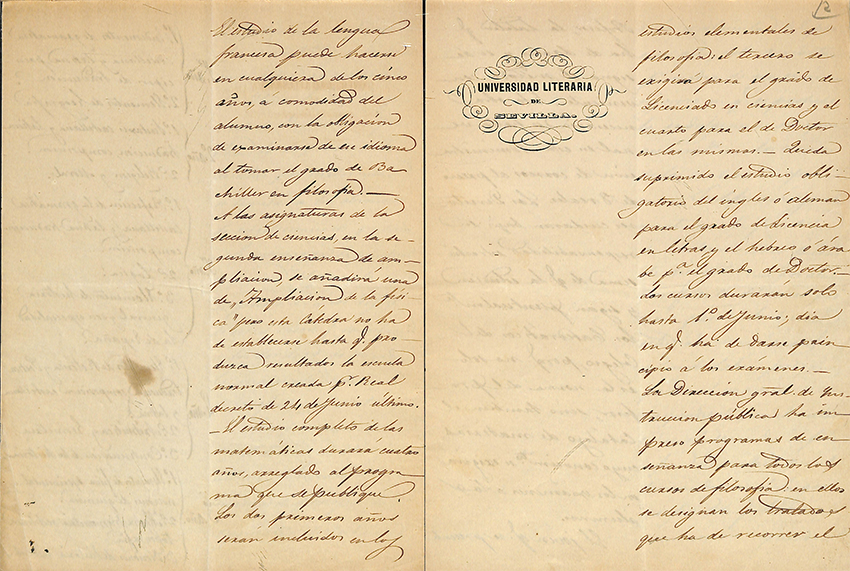 El estudio de la lengua
francesa puede hacerse
en cualquiera de los cinco
años, á comodidad del
alumno, con la obligacion
de examinarse de ese idioma
al tomar el grado de Ba
chiller en filosofía. —
A las asignaturas de la
seccion de ciencias, en la se-
gunda enseñanza de am-
pliacion, se añadirá una
de "Ampliacion de la fisi
ca" pero esta Catedra no ha
de establecerse hasta q.e pro-
duzca resultados la escuela
normal creada p.r Real
decreto de 24 de Junio último.
— El estudio completo de las
matemáticas durará cuatro
años, arreglado al progra
ma que se publique.
Los dos primeros años
serán incluidos en los
2
UNIVERSIDAD LITERARIA
DE
SEVILLA.
estudios elementales de
filosofia: el tercero se
exigira para el grado de
Licenciado en ciencias y el
cuarto para el de Doctor
en las mismas. — Queda
suprimido el estudio obli-
gatorio del ingles ó aleman
para el grado de licencia
en letras, y el hebreo ó ára
be p.a el grado de Doctor. —
Los cursos durarán solo
hasta 1.o de Junio, dia
en q.e ha de darse prin
cipio á los exámenes. —
La Direccion gral. de Ins-
truccion pública ha im
preso programas de en
señanza para todos los
cursos de filosofia, en ellos
se designan los tratados
que ha de recorrer el